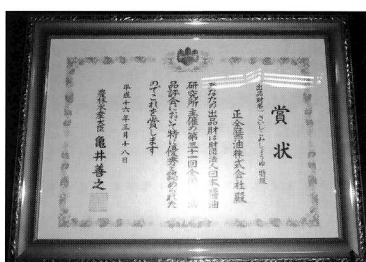 賞状
出品財名 さいしこみしょうゆ 特級
正金醤油株式会社殿
あなたの出品財は財団法人日本醤油
研究所主催の第三十一回全国醤油
品評会において特に優秀と認められた
のでこれを賞します
平成十六年三月十八日
農林水産大臣 亀井善之